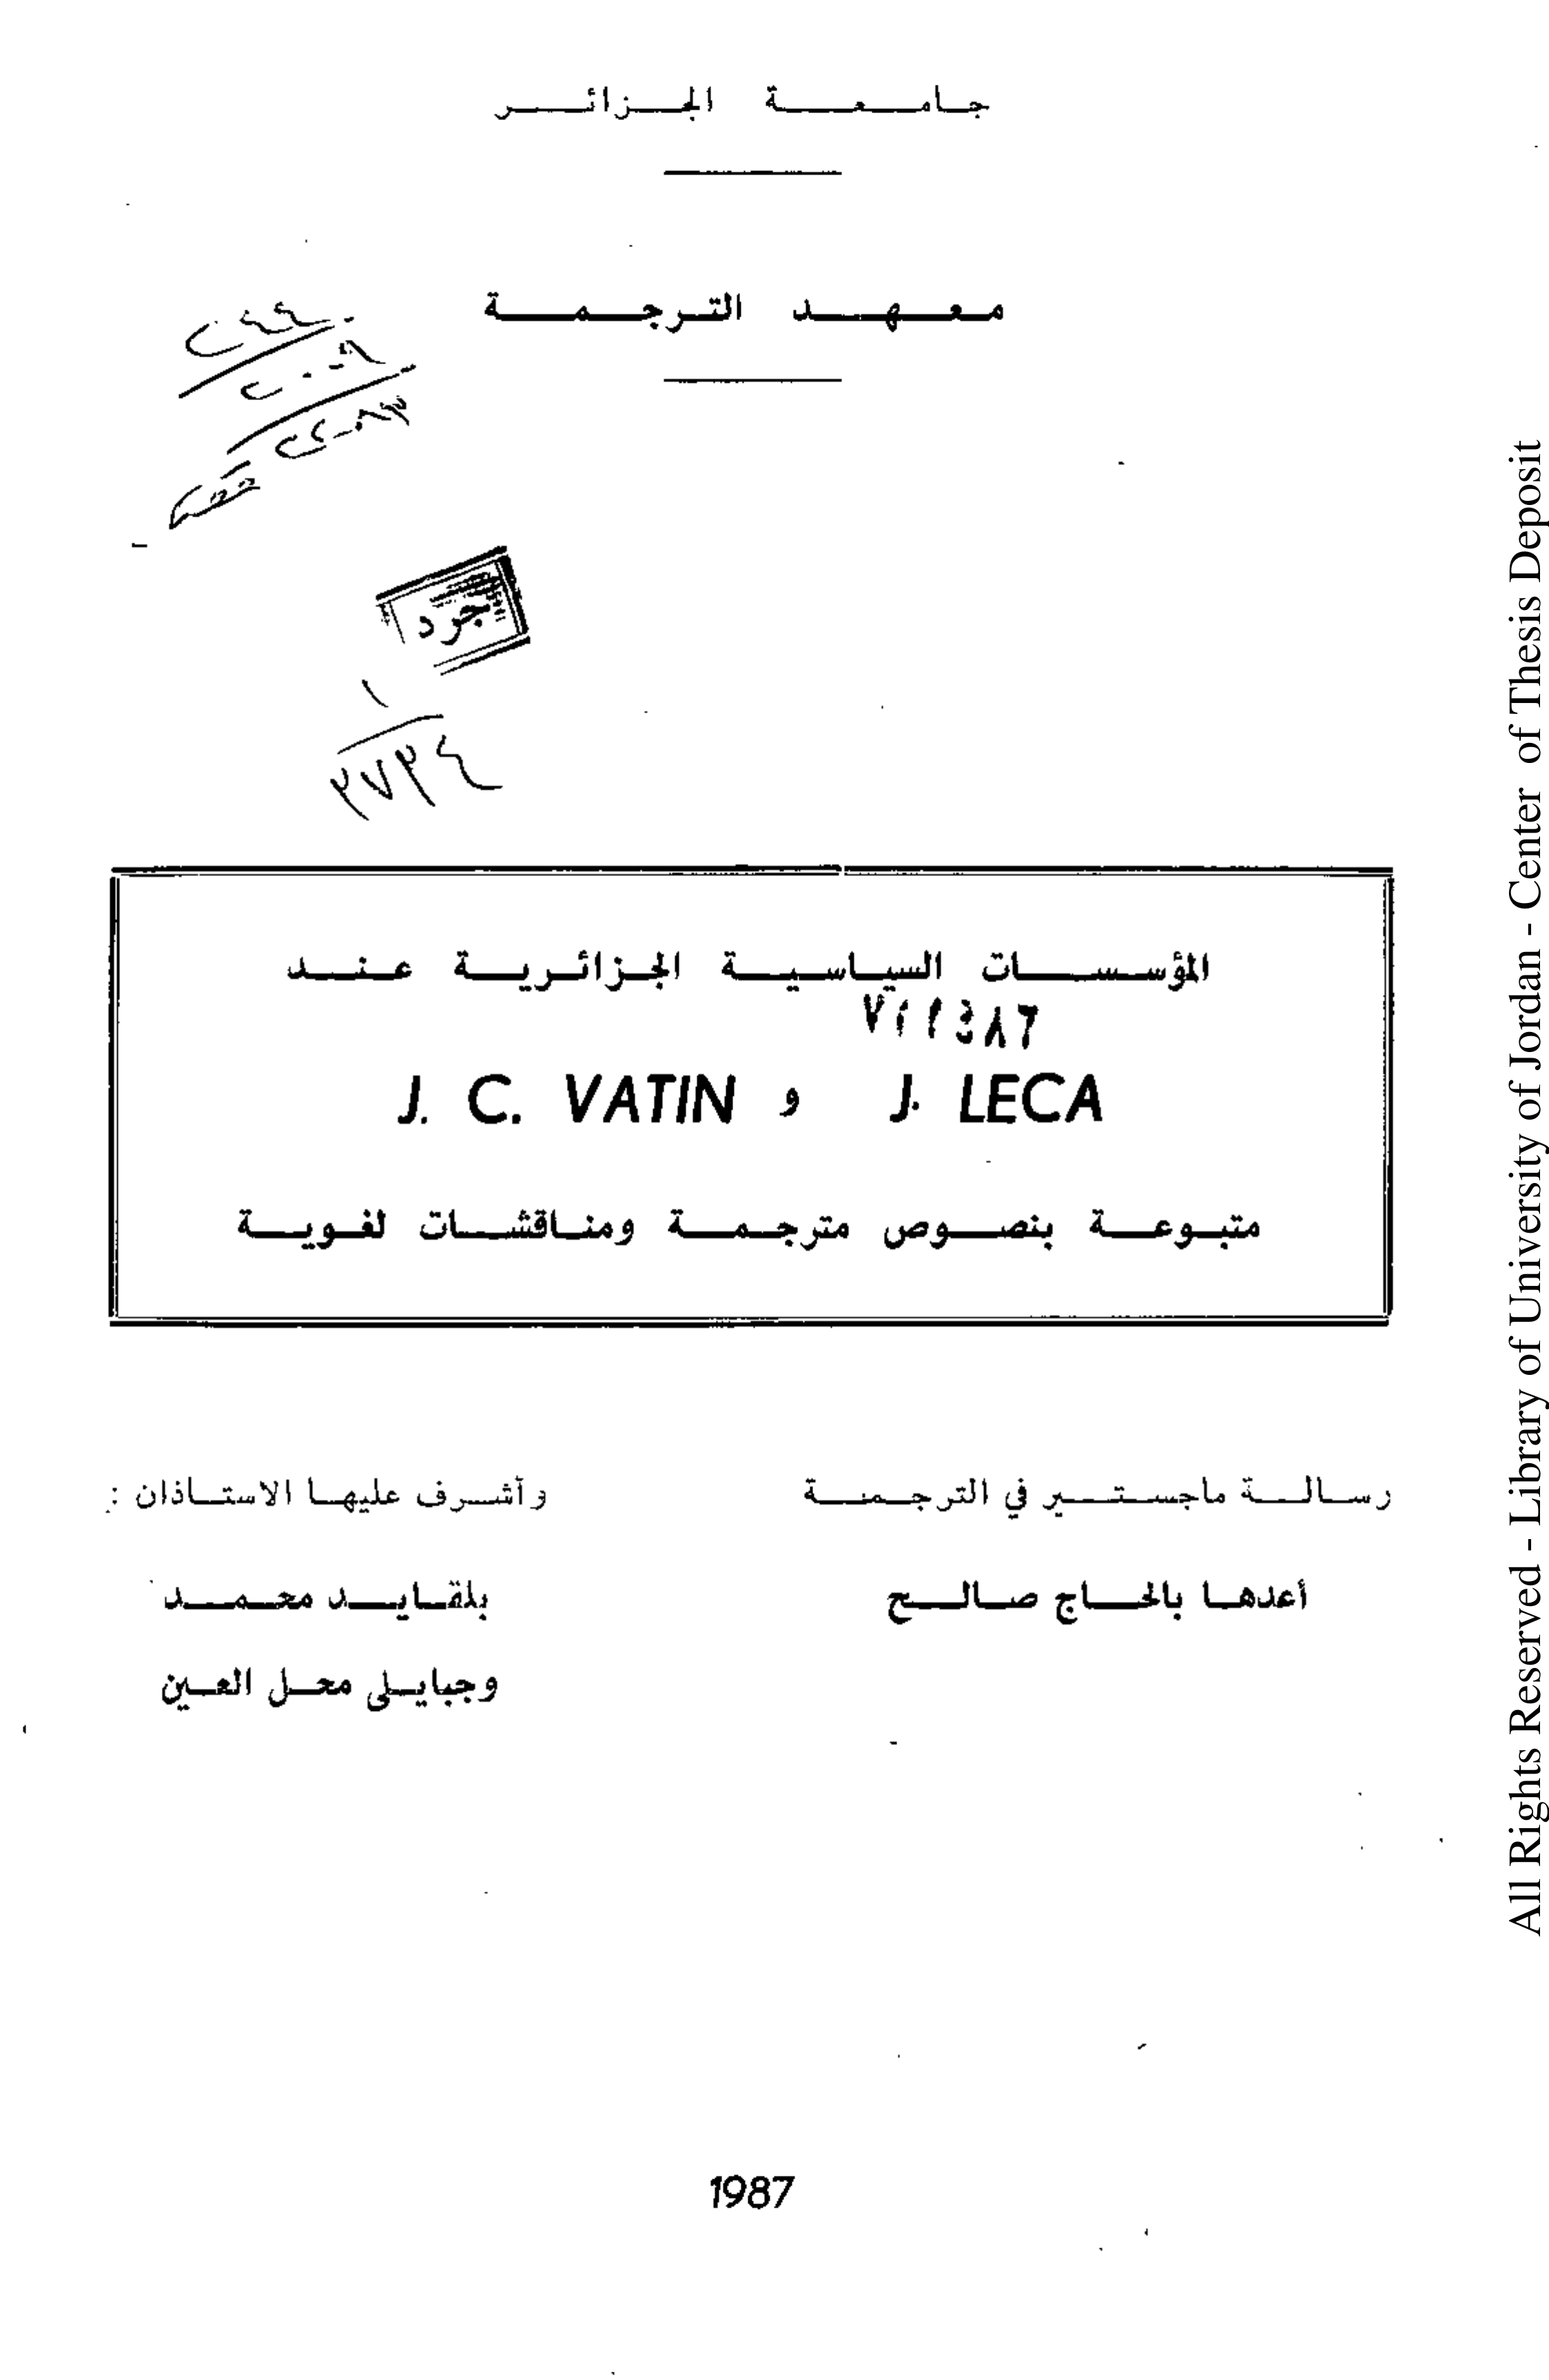 جامعة الجزائر
معهد الترجمة
جرد
١
٢٧٣٤
المؤسسات السياسية الجزائرية عند
J. LECA و J. C. VATIN
متبوعة بنصوص مترجمة ومناقشات لغوية
رسالة ماجستير في الترجمة
أعدها بالحاج صالح
وأشرف عليها الاستاذان :
بلقايد محمد
وجبايلي محل العين
1987
All Rights Reserved - Library of University of Jordan - Center of Thesis Deposit